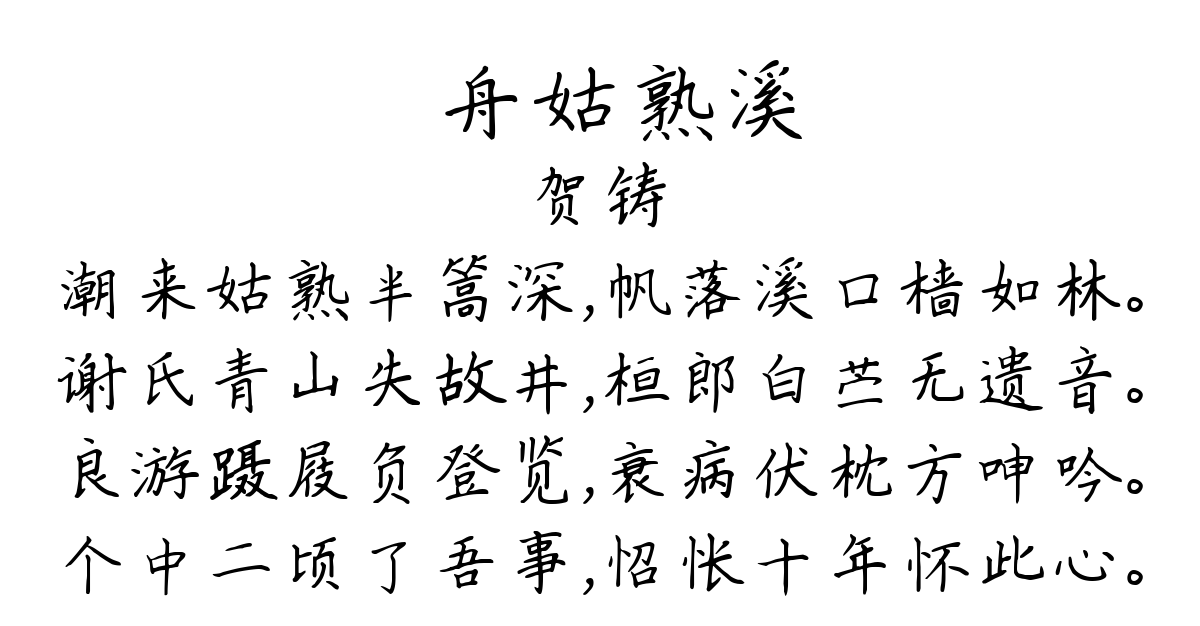 舟姑熟溪
贺铸
潮来姑熟半篙深,帆落溪口樯如林。
谢氏青山失故井,桓郎白苎无遗音。
良游蹑屐负登览,衰病伏枕方呻吟。
个中二顷了吾事,怊怅十年怀此心。